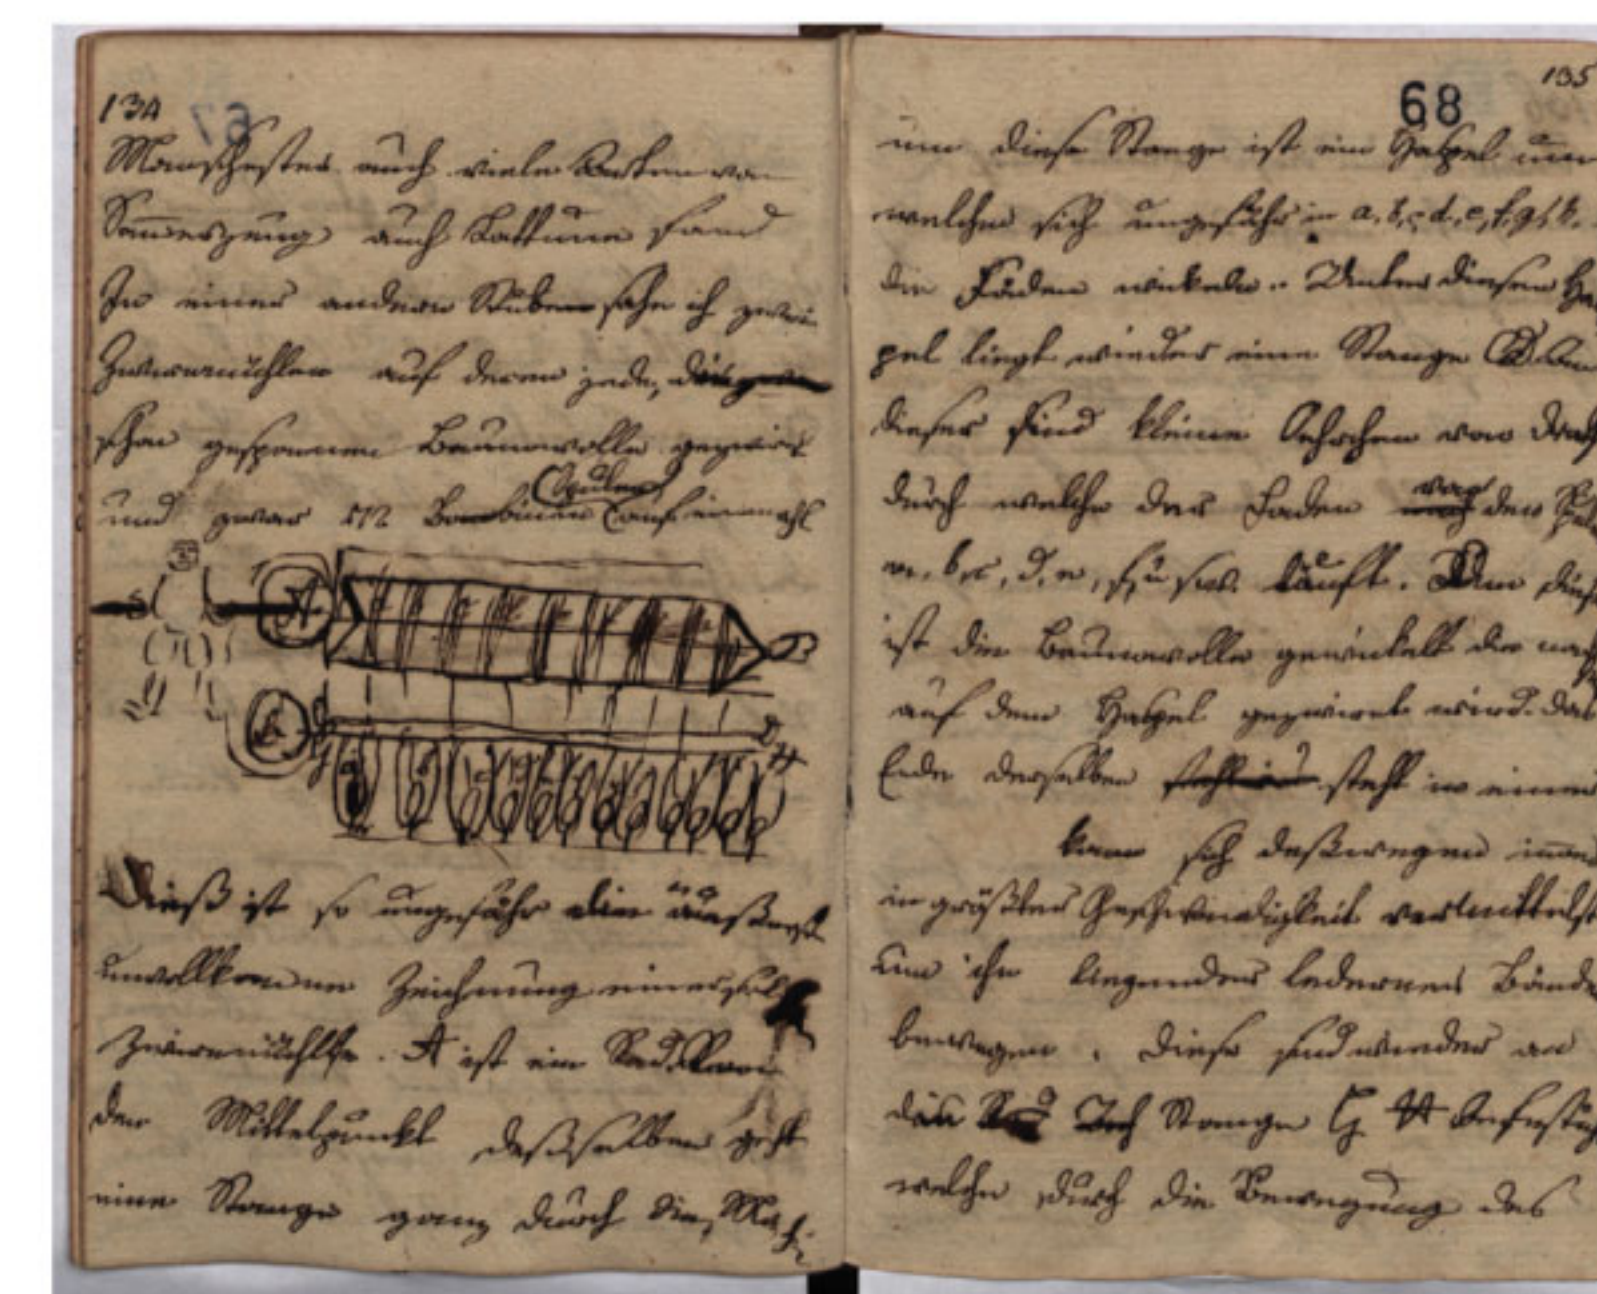 134
67
Manschester auch viele Sorten von
Sommerzeug auch Kattune fand
In einer andern Stuben sahe ich zwei
Zwirnmühlen auf deren jede,
schon gesponnen Baumwolle gezwirnt
(Spulen)
und zwar Bombinen auf einmahl
A B
D
G H
Dieß ist so ungefähr die äußerst
unvollkommne Zeichnung einer
Zwirnmühle. A ist ein Rad von
den Mittelpunckt deßselben geht
eine Stange ganz durch die Maschi
135
68
um diese Stange ist ein Haspel um
welchen sich ungefähr in a, b, c, d, e, f, g, h.
die Fäden wickeln. Unter diesem Has
pel liegt wieder eine Stange
dieser sind kleine Oehrchen von Drath
durch welche der Faden von den
a, b, c, d, e, läuft. An
ist die Baumwolle gewickelt die nach
auf dem Haspel gezwirnt wird. das
Ende derselben steht in einer
kann sich deßwegen immer
in größter Geschwindigkeit vermittelst
um ihn liegender lederner Bänder
bewegen. Diese sind wieder an
Stange G H befestigt
welche durch die Bewegung des